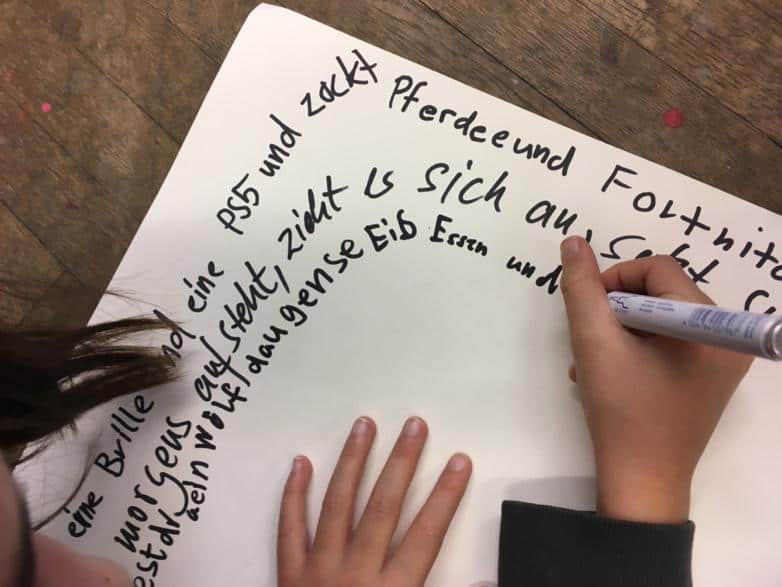 eine Brille und eine PS5 und zockt Pferdeeund Fortnite
morgens aufsteht, zieht is sich an, setzt
ein Wolf, dan gense Eiß Essen und